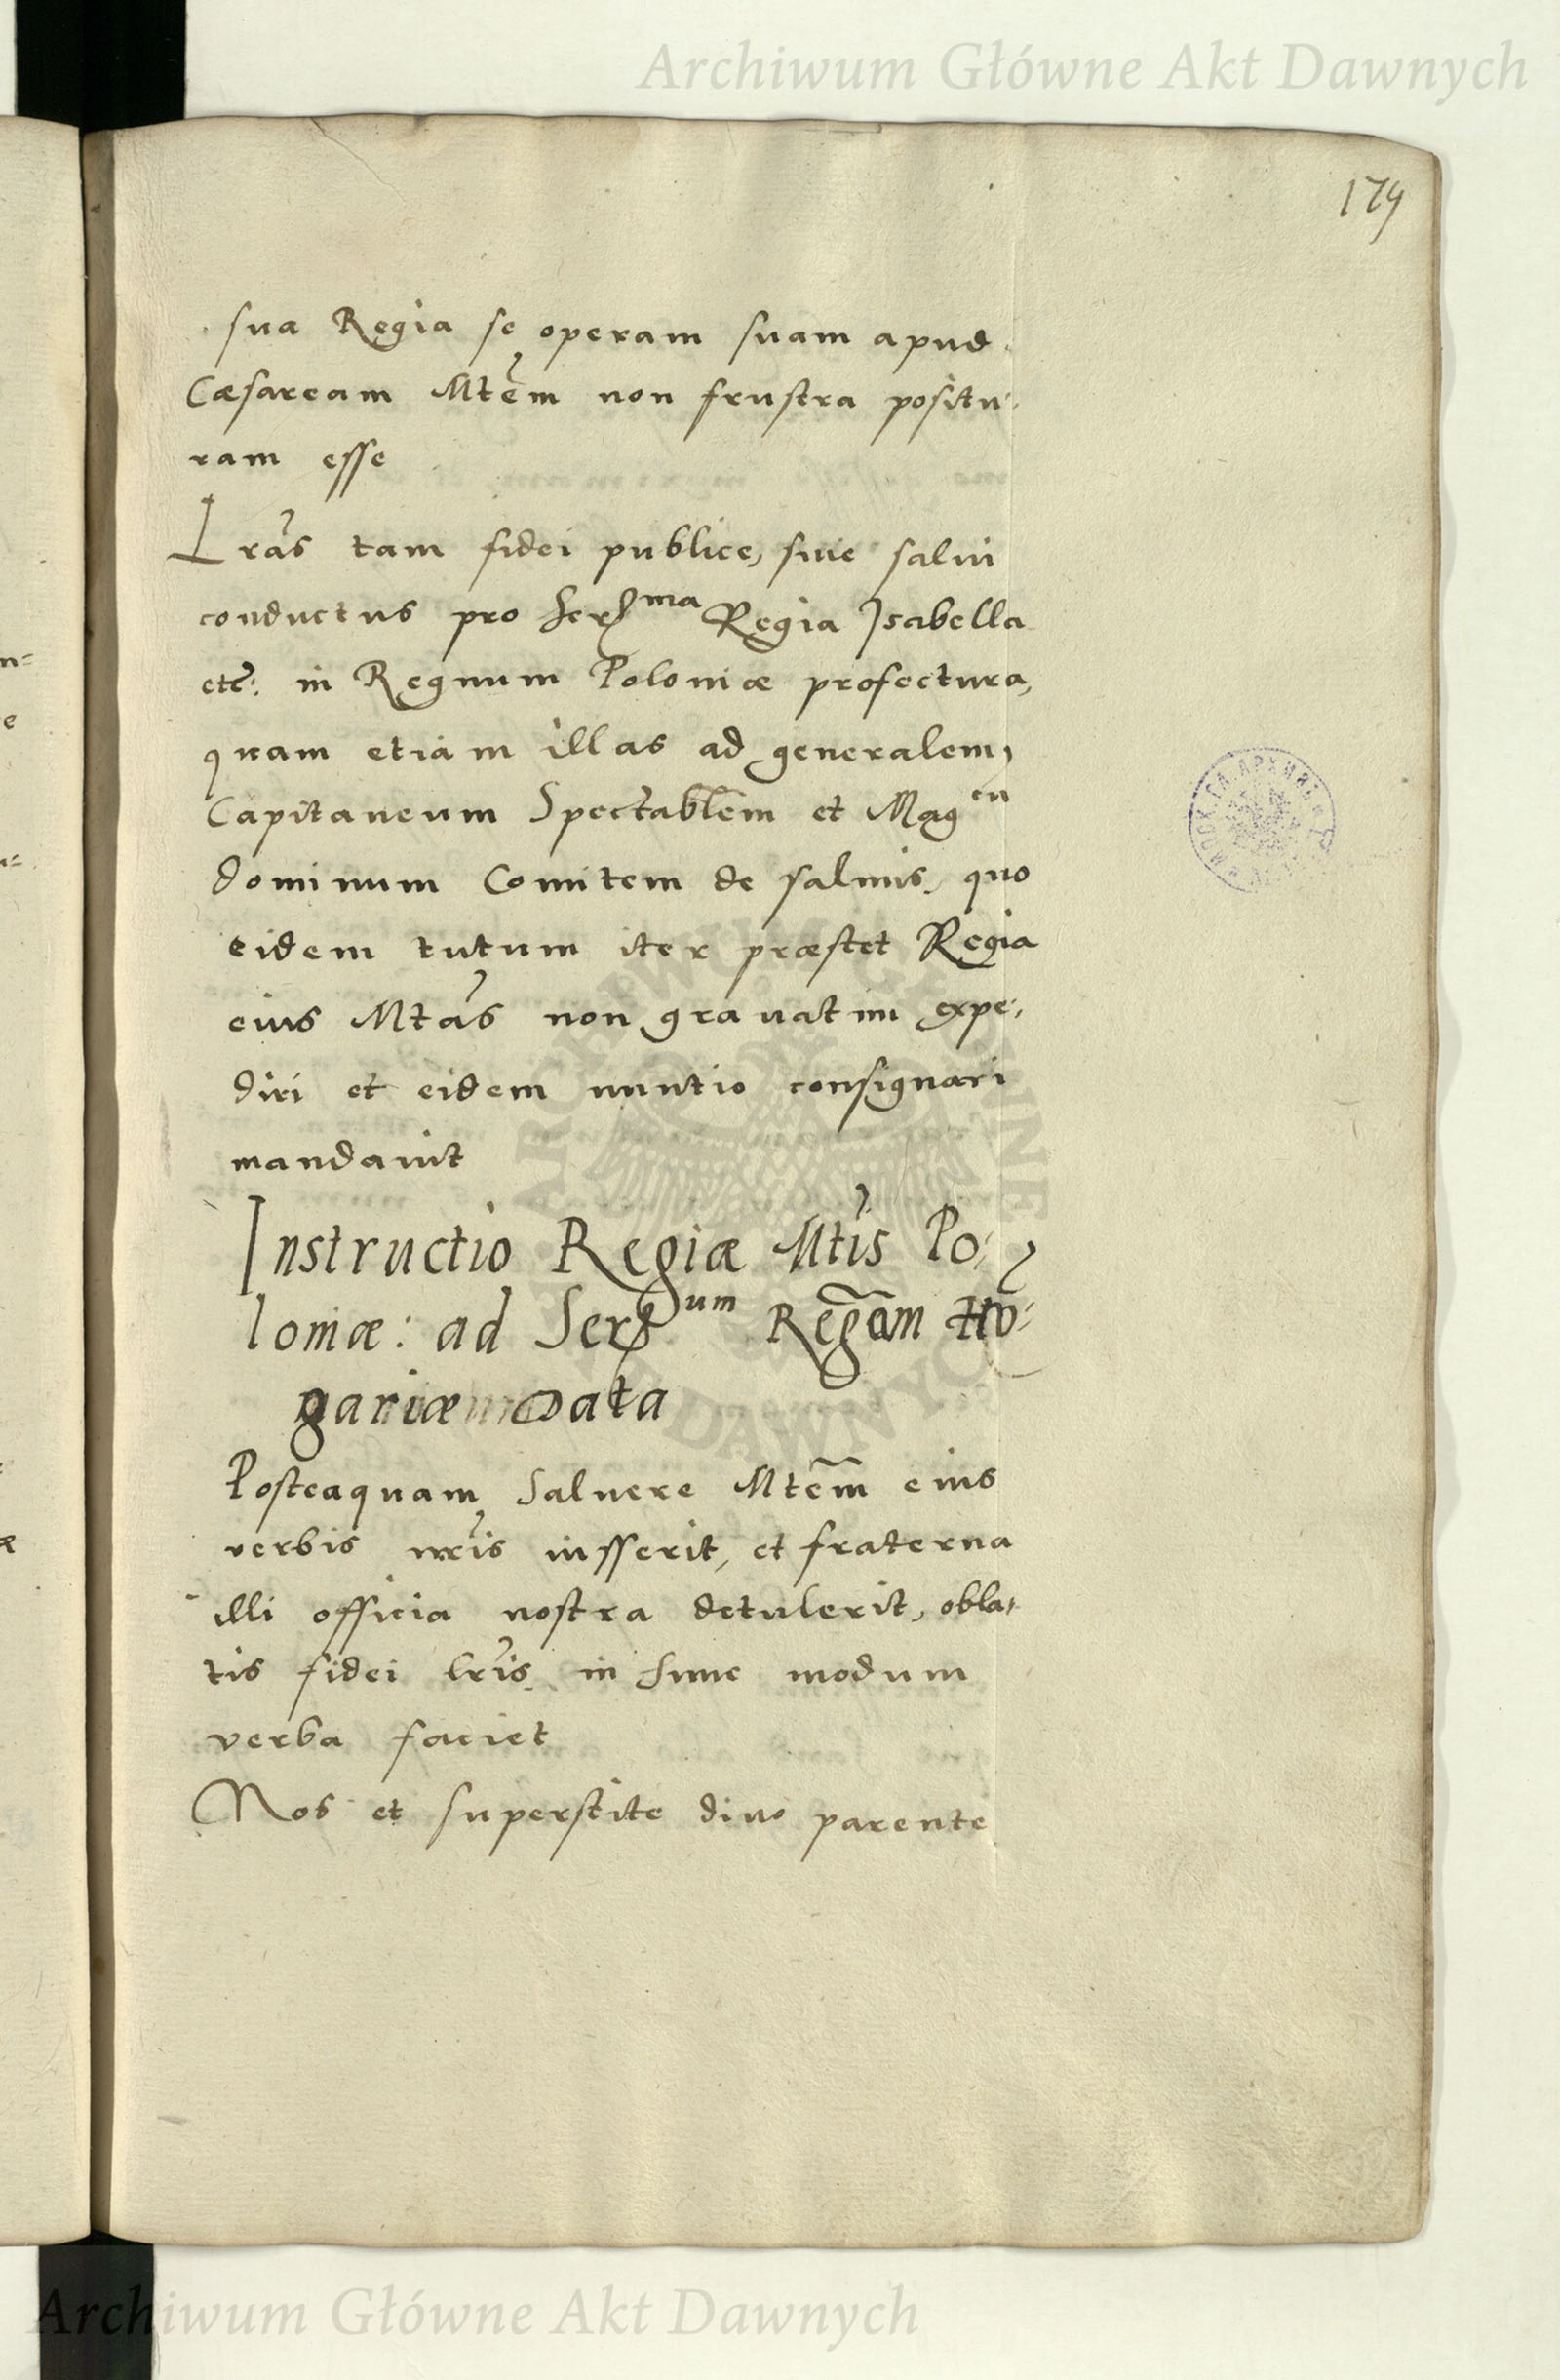 Archiwum Główne Akt Dawnych
179
sua Regia se operam suam apud
Cæsaream Mtem non frustra positu-
ram esse
Lras tam fidei publice, siue salui
conductus pro Ser^ma Regia Isabella
etc: in Regnum Poloniæ profectura,
quam etiam illas ad generalem
Capitaneum Spectablem et Mag^cu
dominum Comitem de salmis, quo
eidem tutum iter præstet Regia
eius Mtas non grauatim expe-
diri et eidem nuntio consignari
mandauit
Instructio Regiæ Mtis Po-
loniæ: ad Ser^um Regem
gariæ Data
Posteaquam Saluere Mtem eius
verbis nris iusserit, et fraterna
illi officia nostra detulerit, obla-
tis fidei lris in hunc modum
verba faciet
Nos et superstite diuo parente
Archiwum Główne Akt Dawnych